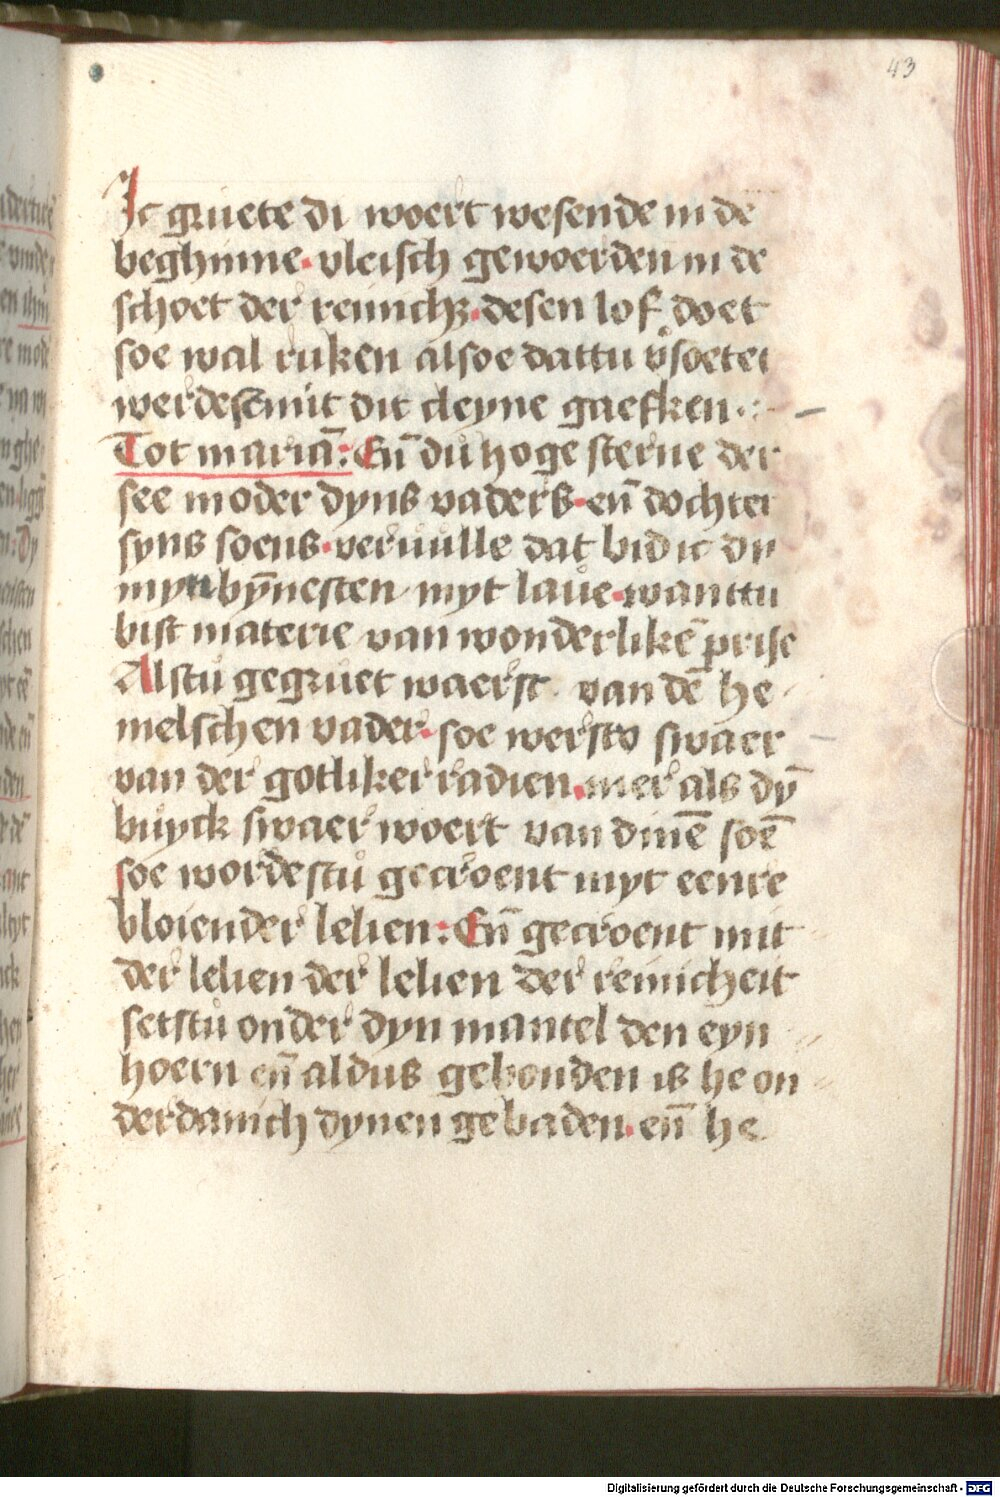 43
Ic gruete di woert wesende in de
beghinne · vleisch gewoerden in de
schoet der reinichz · desen lof doet
soe wal ruken alsoe dattu v̊soetet
werdest mit dit cleyne gaefken ·:·
Tot mariā: Eñ du hoge sterne der
see moder dyns vaders · eñ dochter
syns soens · veruulle dat bid ic dy
myn bȳnesten myt laue · wanttu
bist materie van wonderlikē prise
Alstu gegruet waerst van dē he
melschen vader · soe wersto swaer
van der gotliker radien · mer als dȳ
buyck swaer woert van dinē soē
soe wordestu gecroent myt eenre
bloiender lelien : Eñ gecroent mit
der lelien der lelien der reinicheit
setstu onder dyn mantel den eyn
hoern eñ aldus gebonden is he on
derdanich dynen gebaden · eñ he
Digitalisierung gefördert durch die Deutsche Forschungsgemeinschaft - DFG